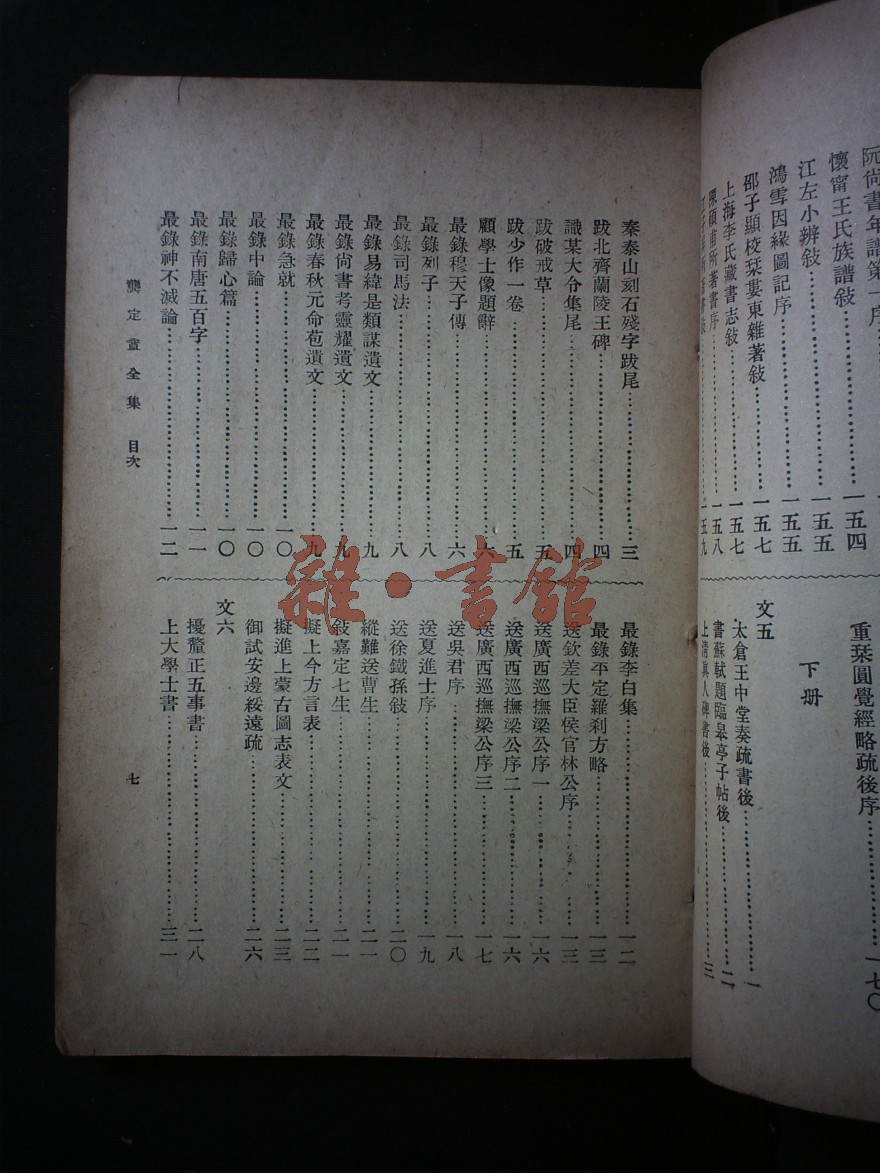 阮尙書年譜第一序……一五四
懷甯王氏族譜敍……一五五
江左小辨敍……一五五
鴻雪因緣圖記序……一五七
邵子顯校栞婁東雜著敍……一五七
上海李氏藏書志敍……一五八
陳碩甫所著書序……一五九
重栞圓覺經略疏後序……一七〇
下册
文五
太倉王中堂奏疏書後……一
書蘇軾題臨皋亭子帖後……二
上淸眞人碑書後……三
秦泰山刻石殘字跋尾……三
跋北齊蘭陵王碑……四
識某大令集尾……四
跋破戒草……五
跋少作一卷……五
顧學士像題辭……六
最錄穆天子傳……六
最錄列子……八
最錄司馬法……八
最錄易緯是類謀遺文……九
最錄尙書考靈耀遺文……九
最錄春秋元命苞遺文……九
最錄急就……一〇
最錄中論……一〇
最錄歸心篇……一〇
最錄南唐五百字……一一
最錄神不滅論……一二
最錄李白集……一二
最錄平定羅刹方略……一三
送欽差大臣侯官林公序……一三
送廣西巡撫梁公序一……一六
送廣西巡撫梁公序二……一六
送廣西巡撫梁公序三……一七
送吳君序……一八
送夏進士序……一九
送徐鐵孫敍……二〇
縱難送曹生……二一
敍嘉定七生……二一
擬上今方言表……二二
擬進上蒙古圖志表文……二三
御試安邊綏遠疏……二六
文六
擾釐正五事書……二八
上大學士書……三一
龔定盦全集 目次
七
雜·書館